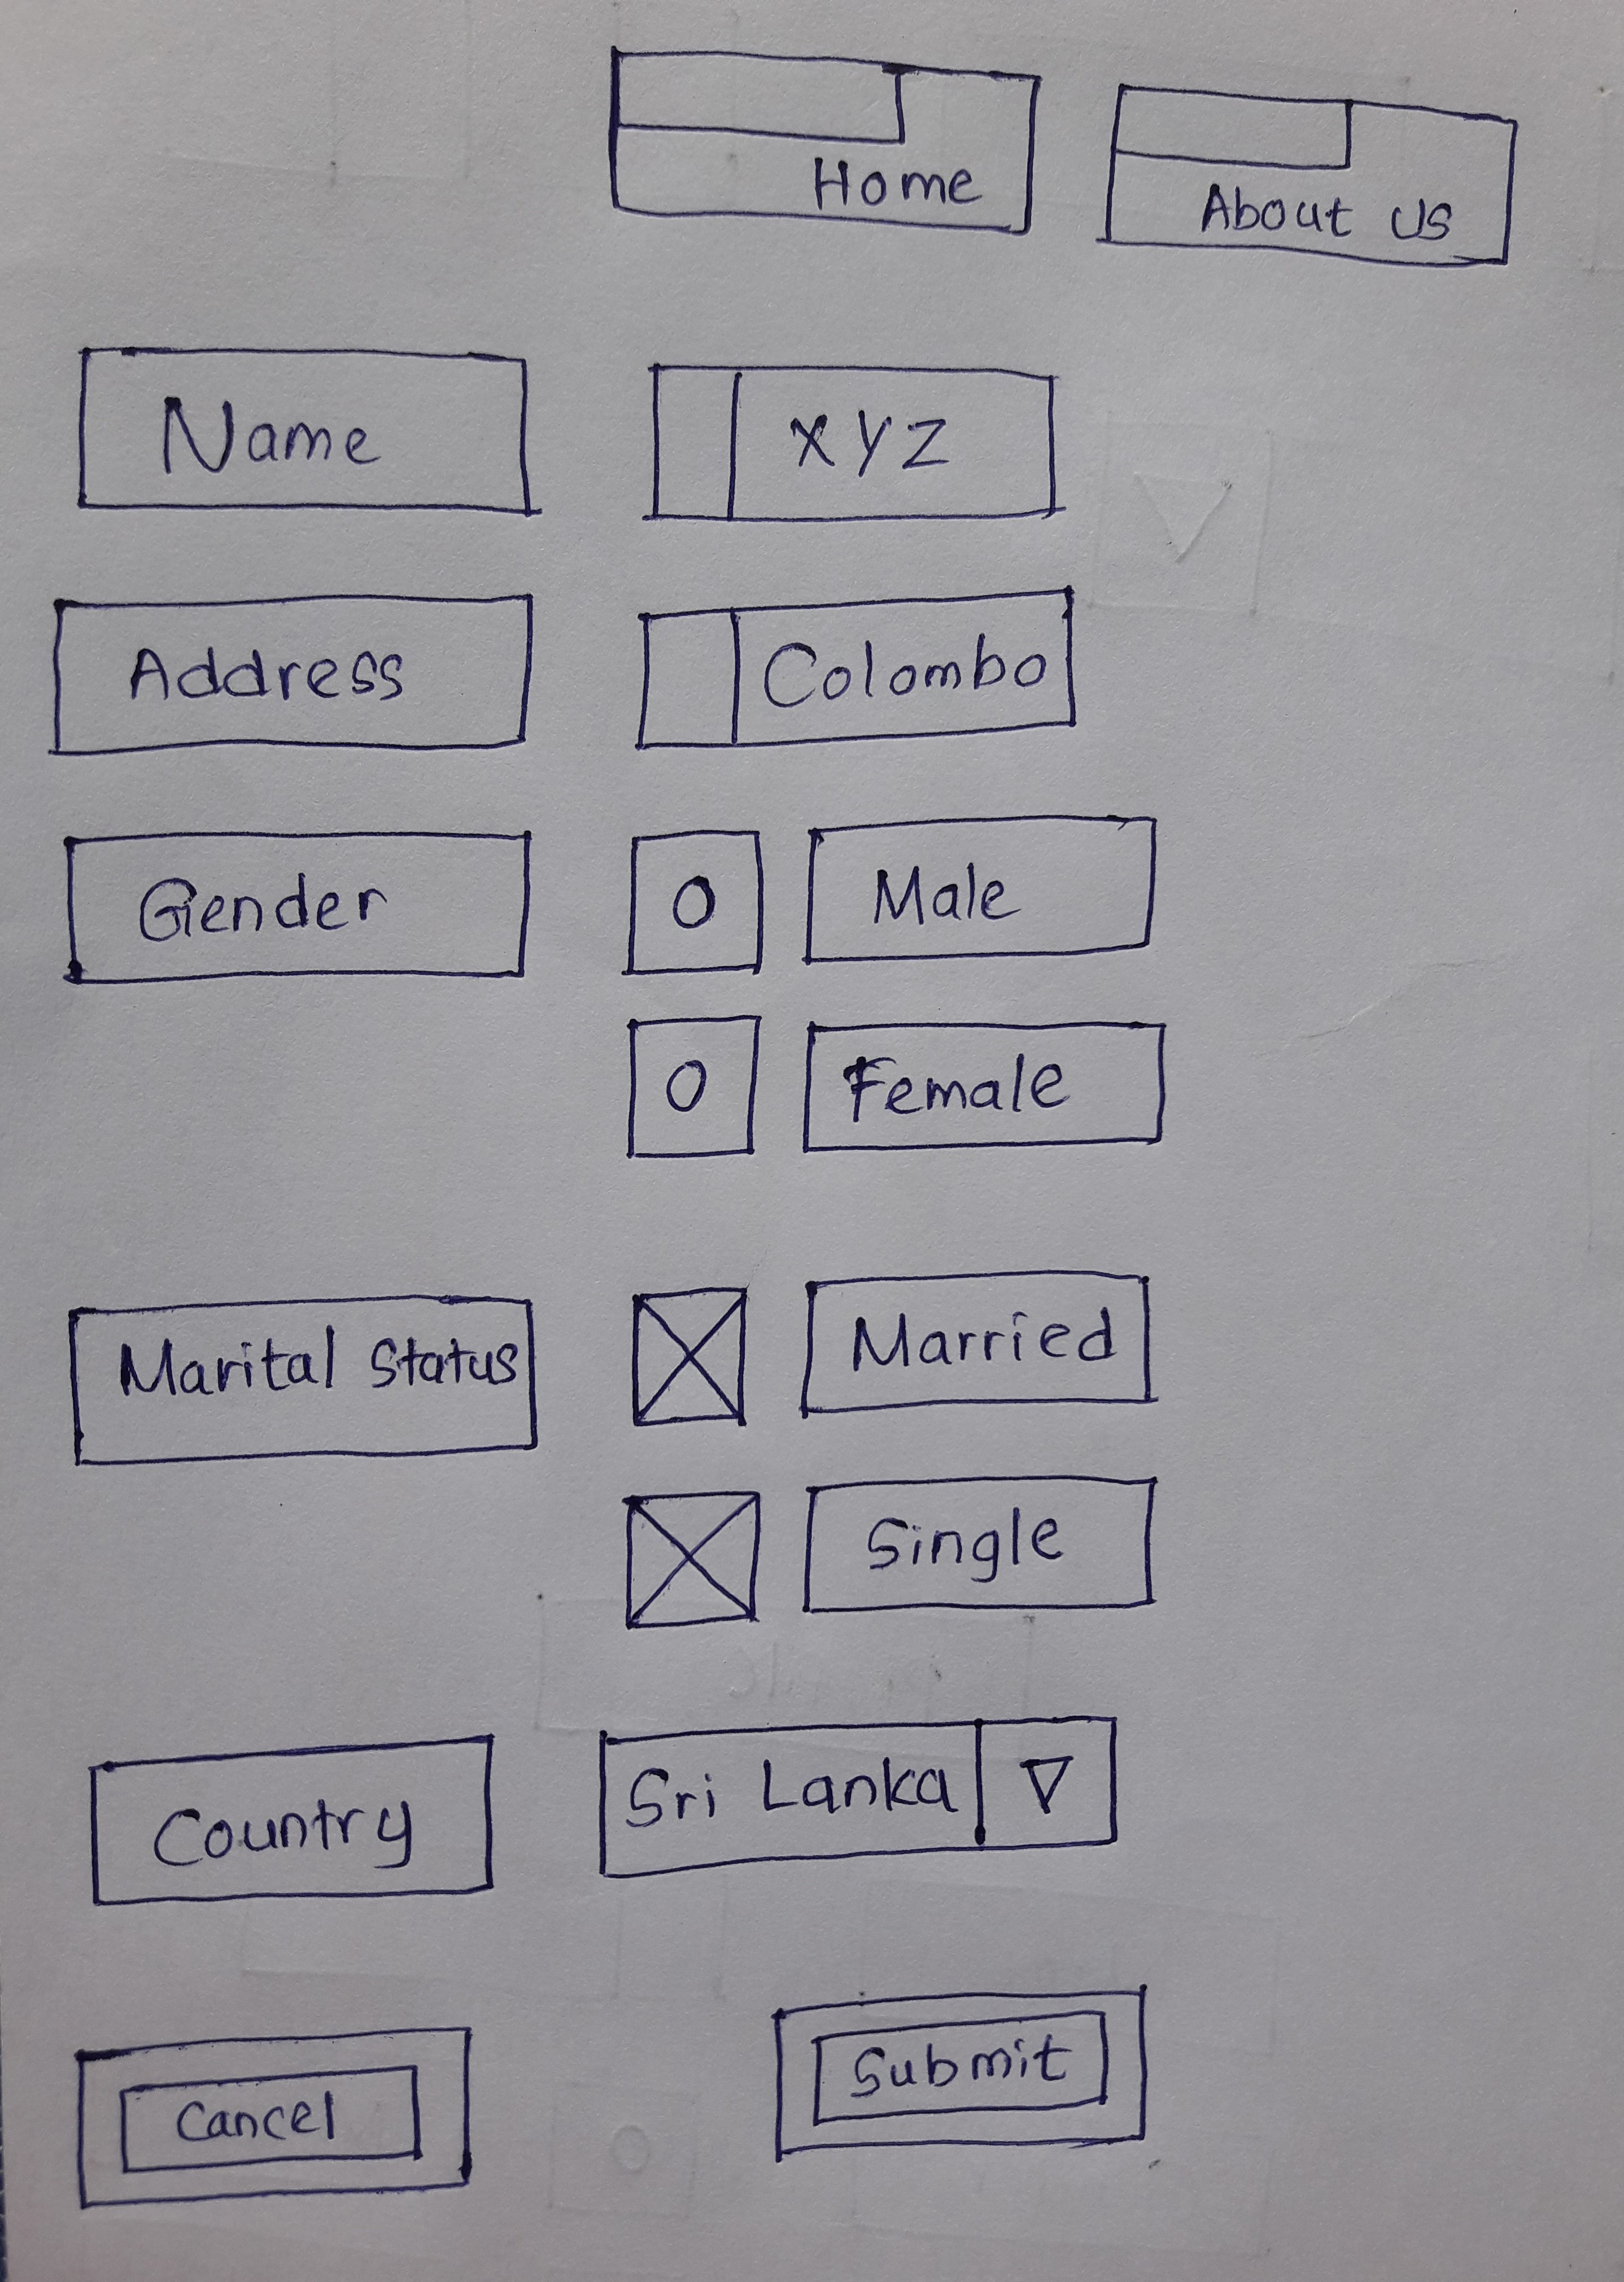 Home
About us
Name
XYZ
Address
Colombo
Gender
O Male
O Female
Marital Status
Married
Single
Country
Sri Lanka
Cancel
Submit